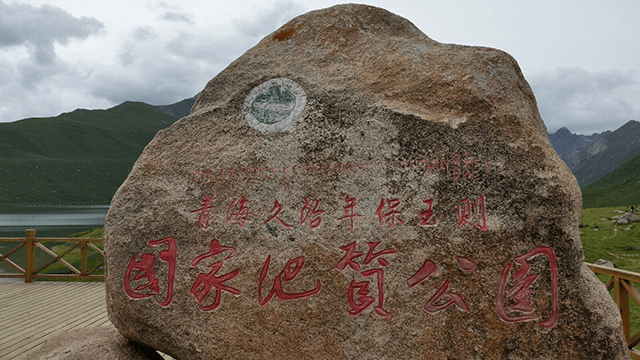 青海久治年保玉则
国家地质公园